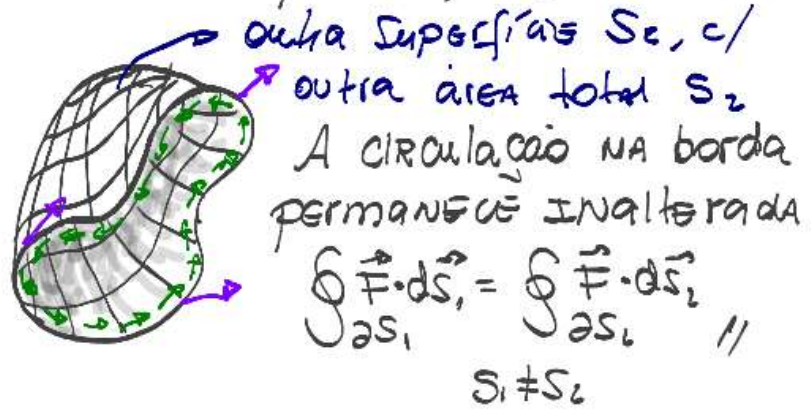 outra superfície S₂, c/
outra área total S₂
A circulação na borda
permanece inalterada
∮∂S₁ F⃗·dS⃗₁ = ∮∂S₂ F⃗·dS⃗₂ //
S₁ ≠ S₂